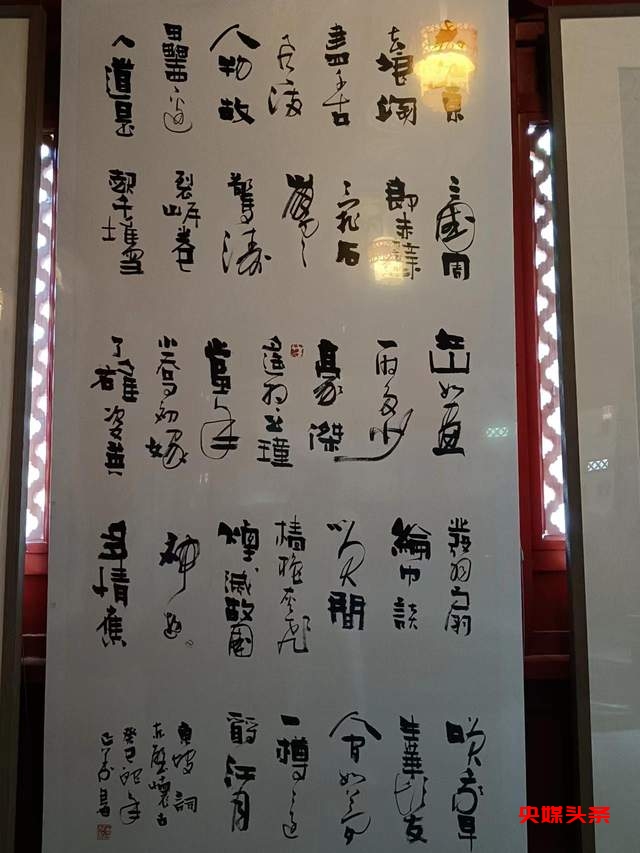 東
去浪淘
盡千古
風流
人物故
壘西邊
人道是
三國周
郎赤壁
亂石
崩雲
驚濤
裂岸卷
千堆雪
江山如畫
一時多少
豪傑
遥想公瑾
當年
小喬初嫁
了雄姿英
發羽扇
綸巾談
笑間
檣櫓灰飛
煙滅故國
神遊
多情應
笑我早
生華髮
人間如夢
一樽還
酹江月
東坡詞
赤壁懷古
癸巳 年
央媒头条